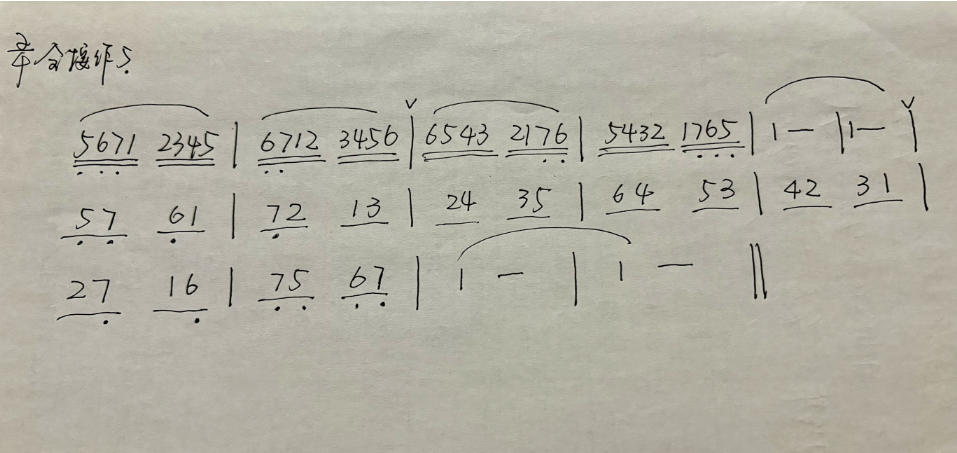 2/4 全按作5
5671 2345 | 6712 3456 | 6543 2176 | 5432 1765 | 1 — | 1 — |
57 61 | 72 13 | 24 35 | 64 53 | 42 31 |
27 16 | 75 67 | 1 — | 1 — ||